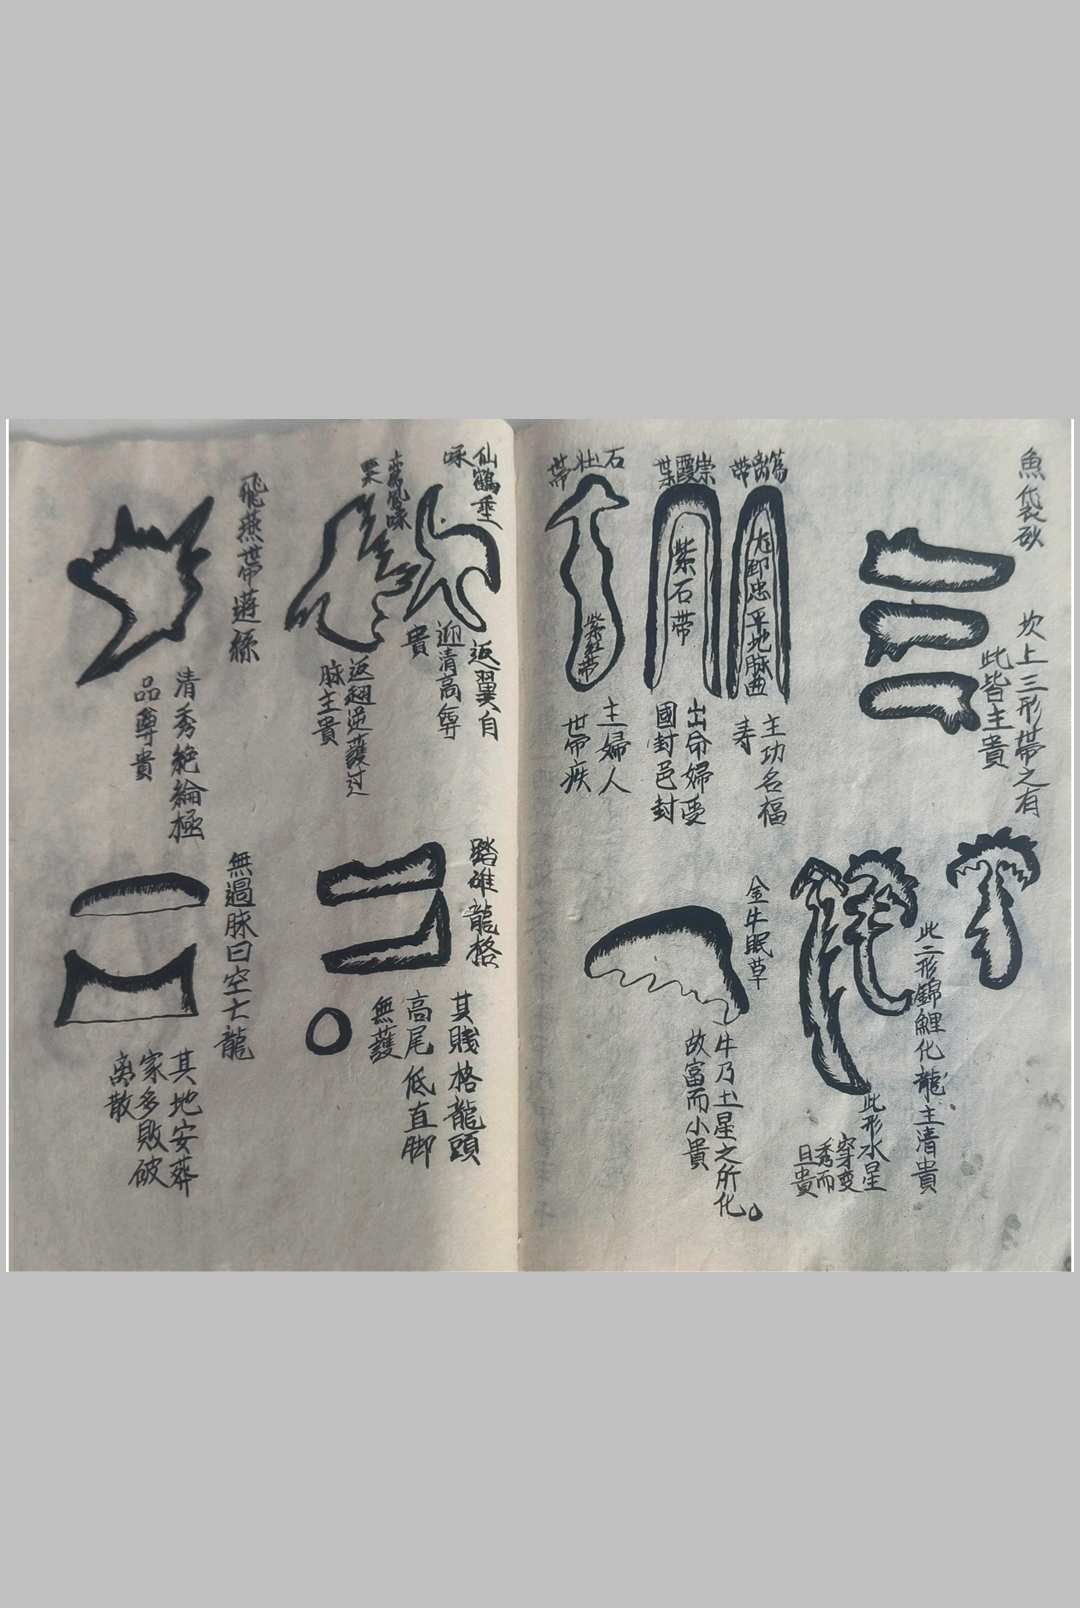 魚袋砂
坎上三形帶之有
此皆主貴
篤
帶
尤卸忠平地脉曲
主功名福
寿
崇
霞
紫石帶
出命婦受
國封邑封
石
壮
帶
紫紅帶
主婦人
世帶疾
此二形錦鯉化龍主清貴
此形水星
穿变
秀而
且貴
金牛眠草
牛乃土星之所化
故富而小貴
仙鶴垂
咮
返翼自
迎清高尊
貴
鸞鳳咮
返翅逆護过
脉主貴
飛燕帶遊絲
清秀絶綸極
品尊貴
踏碓龍格
其賤格龍頭
高尾低直脚
無護
無過脉曰空亡龍
其地安葬
家多敗破
离散